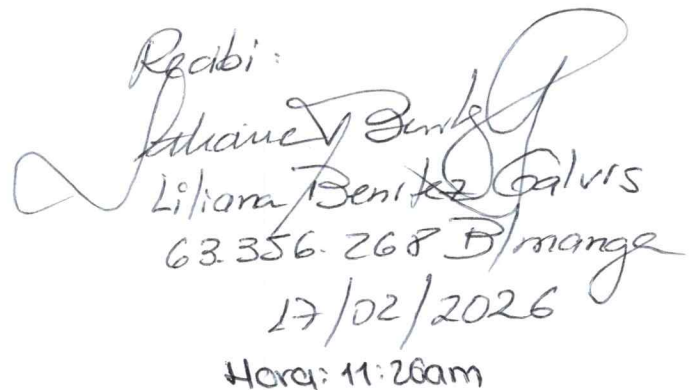 Recibi:
Liliana Benitez G
Liliana Benitez Galvis
63.356.268 B/manga
17/02/2026
Hora: 11:26am